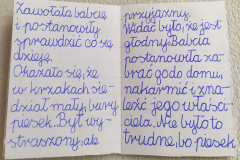 Zawołała babcię
i postanowiły
sprawdzić co się
dzieje.
Okazało się, że
w krzakach sie-
dział mały, bury
piesek. Był wy-
straszony, ale
przyjazny.
Widać było, że jest
głodny. Babcia
postanowiła za-
brać go do domu,
nakarmić i zna-
leźć jego właści-
ciela. Nie było to
trudne, bo piesek